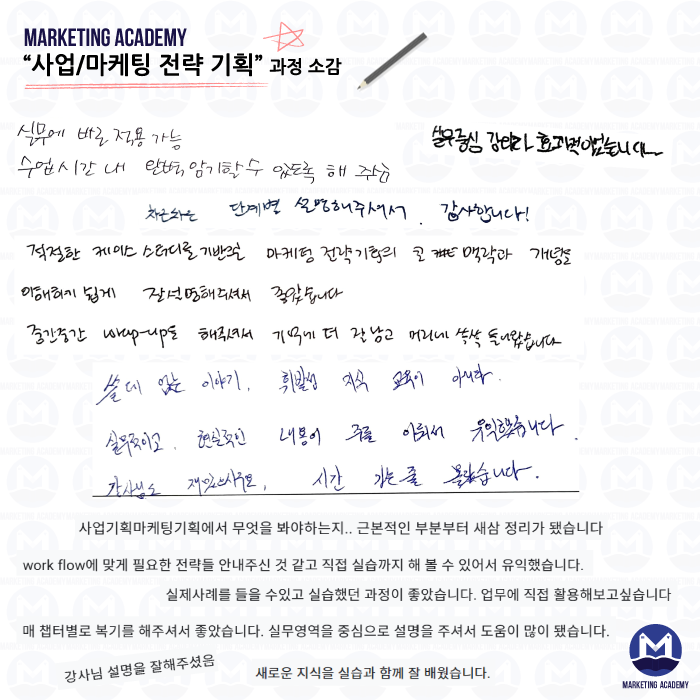 MARKETING ACADEMY
“사업/마케팅 전략 기획” 과정 소감
실무에 바로 적용 가능
수업시간 내 반복 암기할 수 있도록 해 주심
실무중심 강의라 효과적이었습니다
차근차근 단계별 설명해주셔서. 감사합니다!
적절한 케이스 스터디를 기반으로 마케팅 전략기획의 큰 맥락과 개념을
이해하기 쉽게 잘 설명해주셔서 좋았습니다
중간중간 wrap-up도 해주셔서 기억에 더 잘 남고 머리에 쏙쏙 들어왔습니다
쓸데 없는 이야기, 휘발성 지식 교육이 아니라.
실무적이고, 현실적인 내용이 주를 이뤄서 유익했습니다.
강사님도 재밌으시구요, 시간 가는 줄 몰랐습니다.
사업기획마케팅기획에서 무엇을 봐야하는지.. 근본적인 부분부터 새삼 정리가 됐습니다
work flow에 맞게 필요한 전략들 안내주신 것 같고 직접 실습까지 해 볼 수 있어서 유익했습니다.
실제사례를 들을 수있고 실습했던 과정이 좋았습니다. 업무에 직접 활용해보고싶습니다
매 챕터별로 복기를 해주셔서 좋았습니다. 실무영역을 중심으로 설명을 주셔서 도움이 많이 됐습니다.
강사님 설명을 잘해주셨음
새로운 지식을 실습과 함께 잘 배웠습니다.
MARKETING ACADEMY